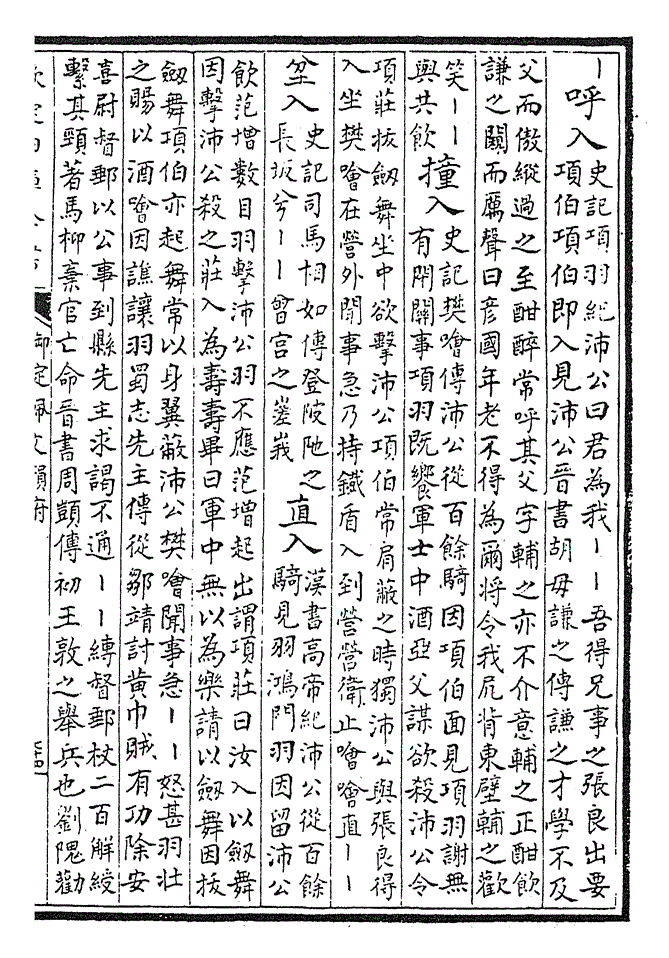 ｜呼入史記項羽紀沛公曰君為我｜｜吾得兄事之張良出要
項伯項伯即入見沛公晉書胡毋謙之傳謙之才學不及
父而傲縱過之至酣醉常呼其父字輔之亦不介意輔之正酣飲
謙之闚而厲聲曰彦國年老不得為爾將令我尻背東壁輔之歡
笑｜｜
與共飲
撞入史記樊噲傳沛公從百餘騎因項伯面見項羽謝無
有閉關事項羽既饗軍士中酒亞父謀欲殺沛公令
項莊拔劔舞坐中欲擊沛公項伯常肩蔽之時獨沛公與張良得
入坐樊噲在營外聞事急乃持鐵盾入到營營衛止噲噲直｜｜
坌入史記司馬相如傳登陂阤之
長坂兮｜｜曾宫之嵳峩
直入漢書高帝紀沛公從百餘
騎見羽鴻門羽因留沛公
飲范增數目羽擊沛公羽不應范增起出謂項莊曰汝入以劔舞
因擊沛公殺之莊入為壽壽畢曰軍中無以為樂請以劔舞因拔
劔舞項伯亦起舞常以身翼蔽沛公樊噲聞事急｜｜怒甚羽壯
之賜以酒噲因譙讓羽蜀志先主傳從鄒靖討黄巾賊有功除安
喜尉督郵以公事到縣先主求謁不通｜｜縛督郵杖二百解綬
繫其頸著馬枊棄官亡命晉書周顗傳初王敦之舉兵也劉隗勸
御定佩文韻府